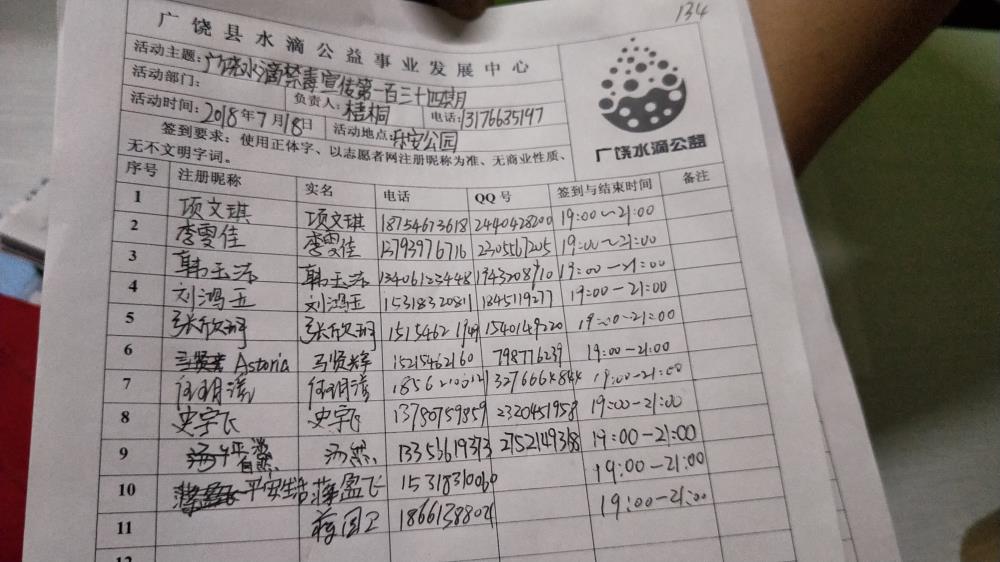 134
广饶县水滴公益事业发展中心
活动主题:广饶水滴禁毒宣传第一百三十四期
活动部门: 负责人:梧桐 电话:13176635147
活动时间:2018年7月18日 活动地点:乐安公园
签到要求:使用正体字、以志愿者网注册昵称为准、无商业性质、
无不文明字词。
广饶水滴公益
序号 注册昵称 实名 电话 QQ号 签到与结束时间 备注
1 项文琪 项文琪 18754673618 2440428200 19:00~21:00
2 李雯佳 李雯佳 13793976716 2305567205 19:00~21:00
3 19:00-21:00
4 刘鸿玉 刘鸿玉 15318320811 1845119277 19:00-21:00
5 张欣 张欣 1540149220 19:00-21:00
6 Astoria 马贤 15215462160 798776239 19:00-21:00
7 19:00-21:00
8 史宇飞 史宇飞 13780759859 2320451958 19:00-21:00
9 汤 2752149368 19:00-21:00
10 平安生活 蒋盈飞 15318310060 19:00-21:00
11 蒋国卫 19:00-21:00
12